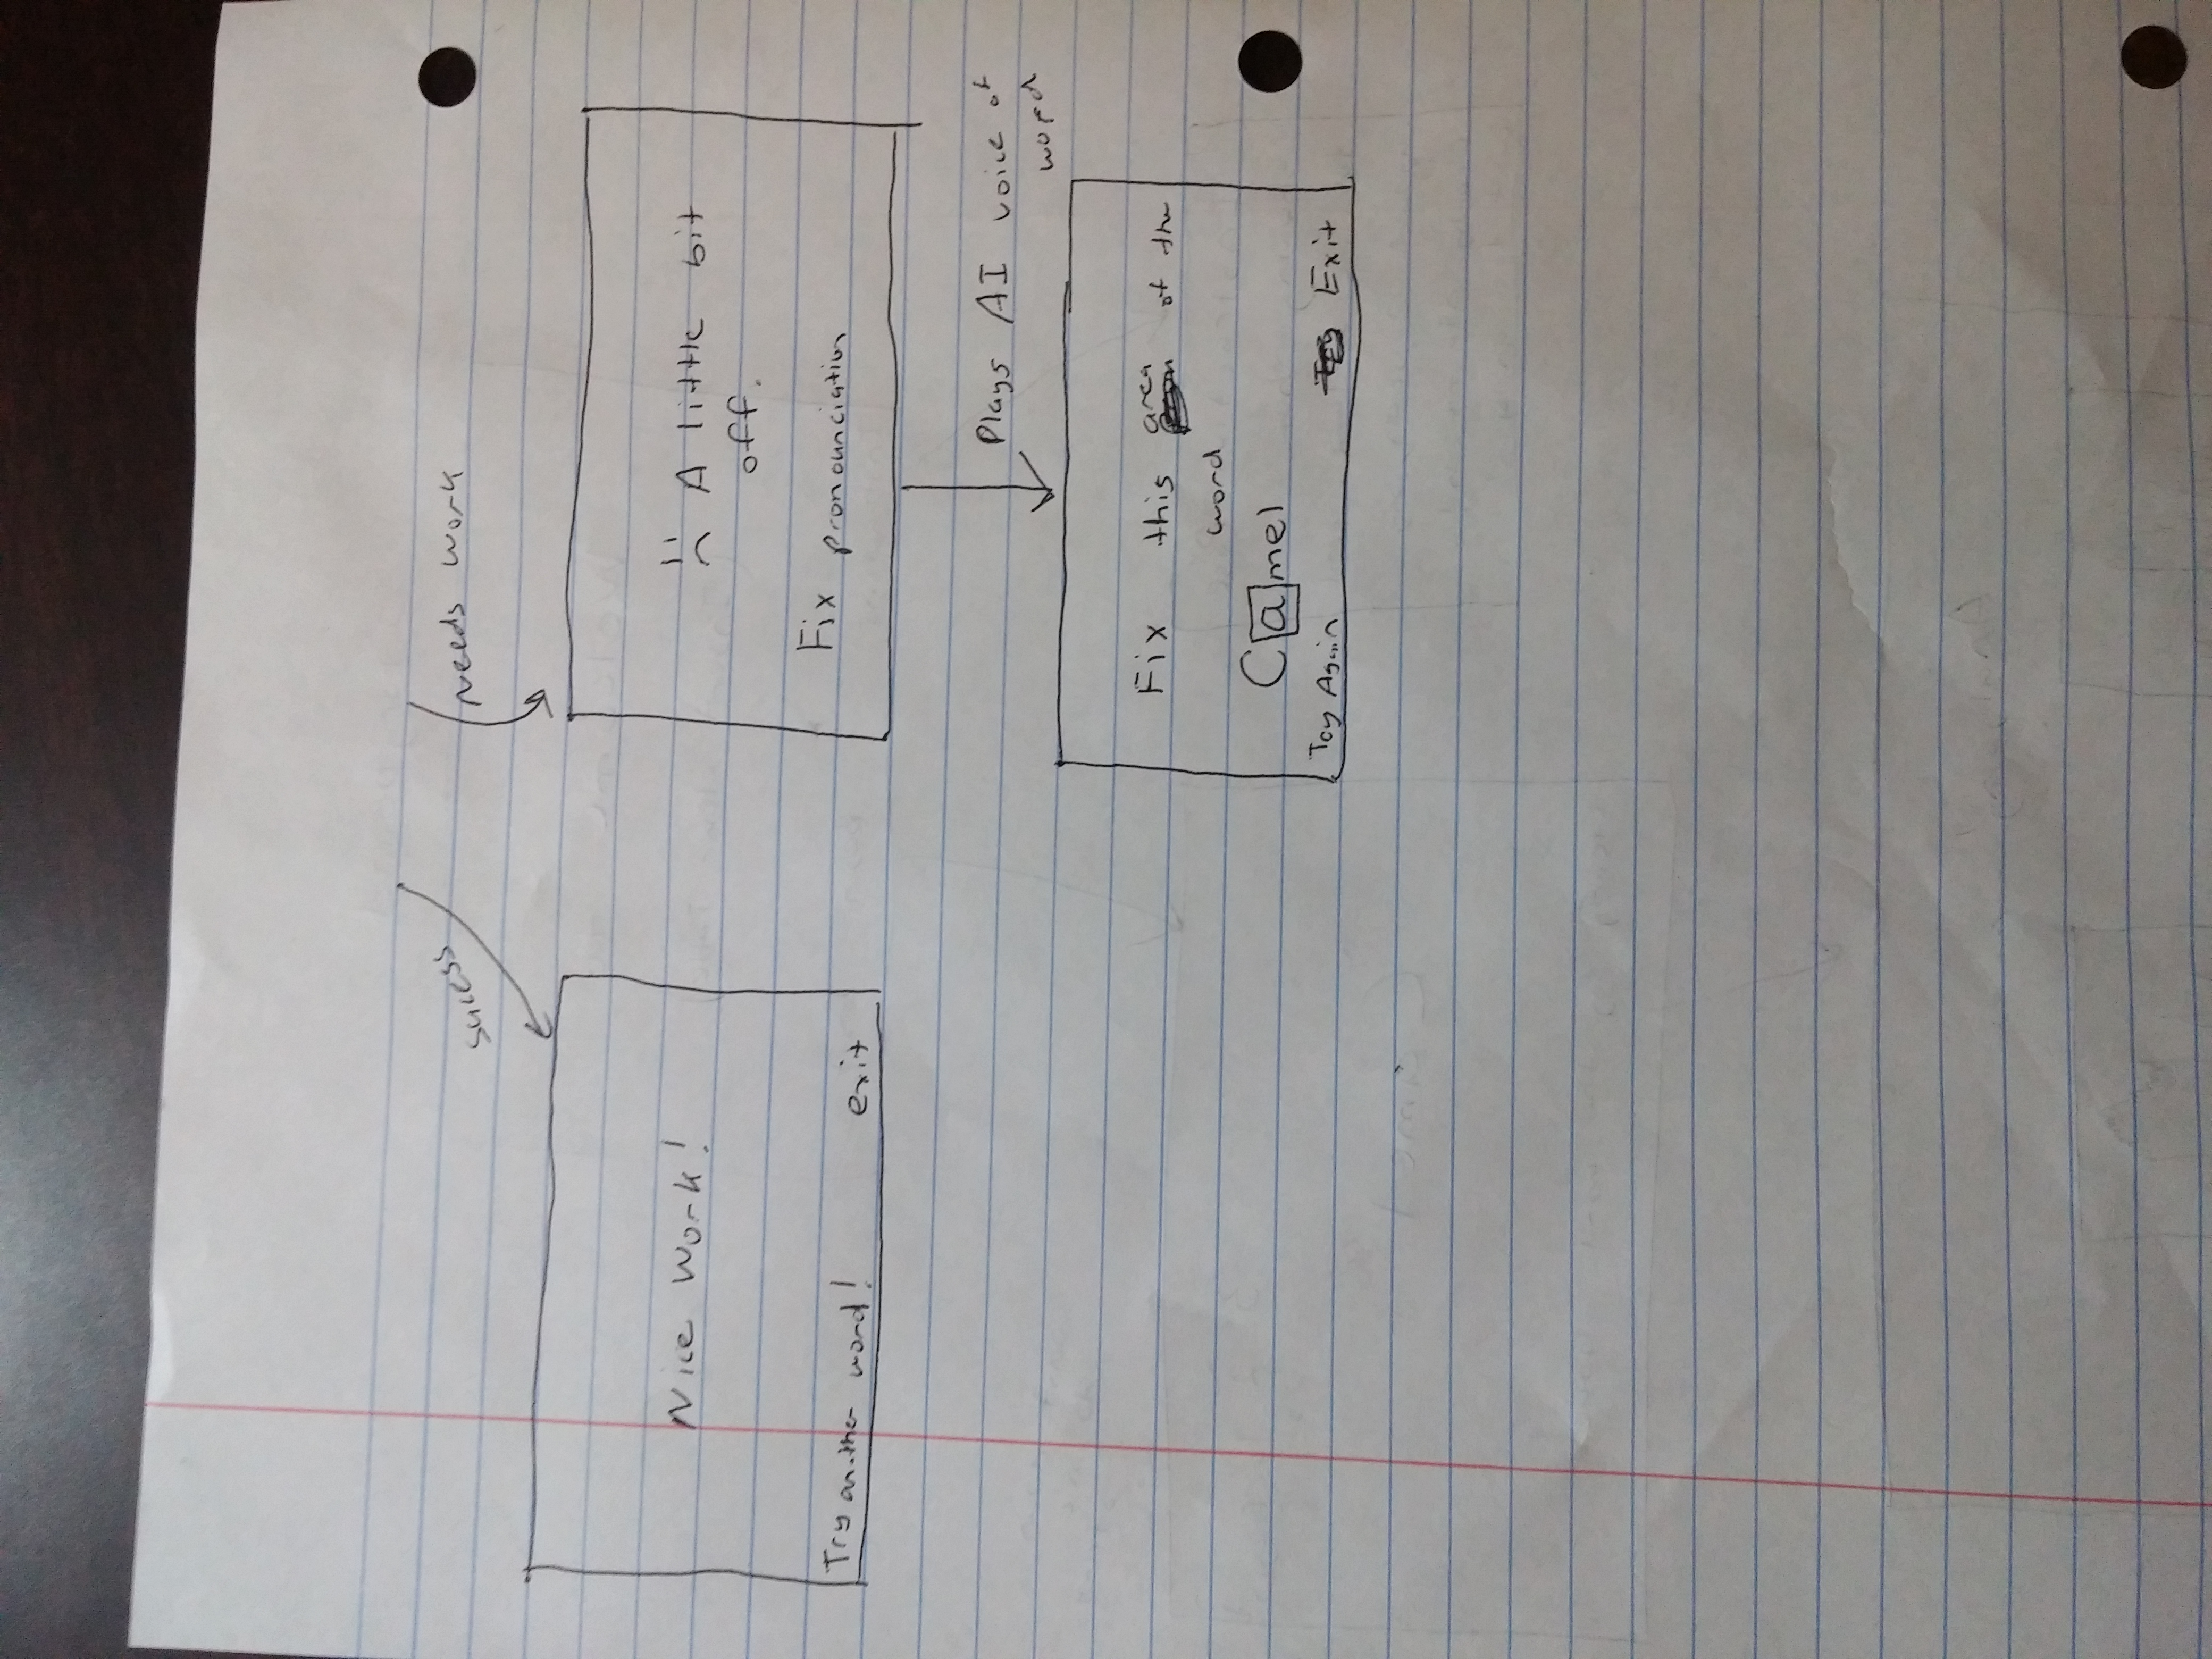 sucess
Needs work
Nice Work!
Try another word!
exit
A little bit
off.
Fix pronounciation
Plays AI voice of
word
Fix this area of the
word
Camel
Try Again
Exit